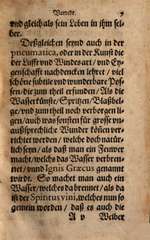 Vorrede. 9
vnd gleich als sein Leben in ihm selber.
Deßgleichen seynd auch in der
pneumatica, oder in der Kunst die
der Lufft vnd Windes art / vnd Eygenschafft
nachdencken lehret / viel
schöne subtile vnd wunderbare
die zum theil erfunden / Als die
Wasserkünste / Spritzen / Blaßbelge /
vnd zum theil noch verborgen liegen /
auch was sonsten für grosse vnaußsprechliche
Wunder können verrichtet
werden / welche doch nachdencken
/ als daß man ein Fewer
macht / welchs das Wasser verbrennet /
wund Ignis Græcus genannt
wird. So macht man auch ein
Wasser / welches da brennet / als da
ist der Spiritus vini, welches nun so
gemein worden / daß es auch die
A v Weiber